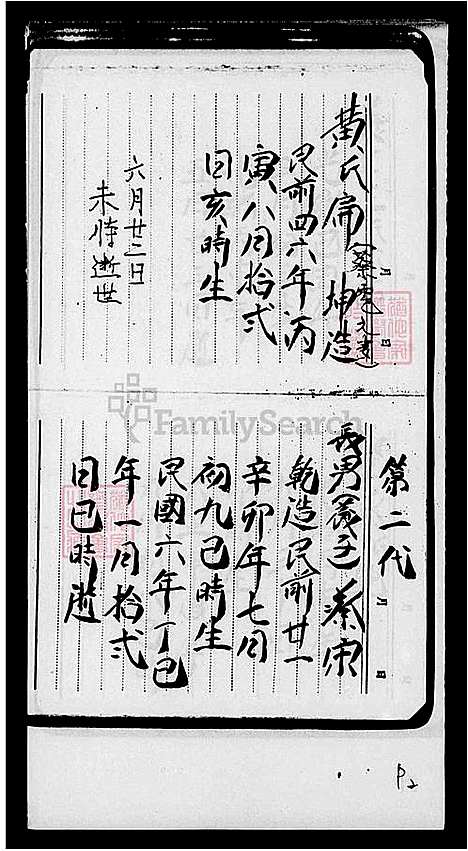 黄氏扁 坤造
民前四六年丙
寅八月拾弍
日亥時生
六月廿二日
未時逝世
第二代
長男(養子)蔡
乾造民前廿一
辛卯年七月
初九巳時生
民國六年丁巳
年一月拾弍
日巳時逝
FamilySearch
P2